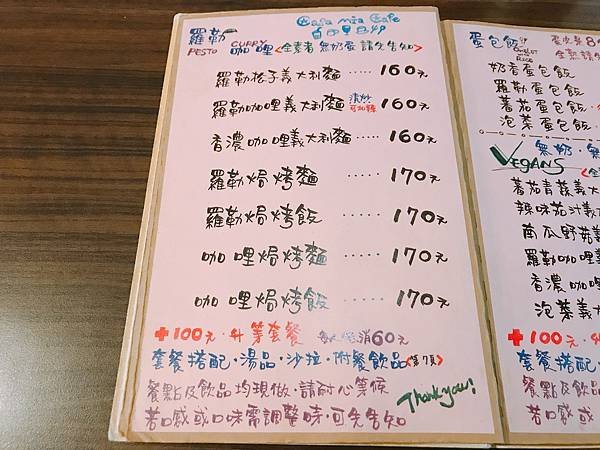 Casa mia Cafe
羅勒 CURRY 咖哩 <全素者 無奶蛋 請先告知>
PESTO
羅勒松子義大利麵 ····· 160元
羅勒咖哩義大利麵 清炒 可加辣 160元
香濃咖哩義大利麵 ···· 160元
羅勒焗烤麵 ····· 170元
羅勒焗烤飯 ····· 170元
咖哩焗烤麵 ····· 170元
咖哩焗烤飯 ····· 170元
+100元·升等套餐 每人低消60元
套餐搭配·湯品·沙拉·附餐飲品<第7頁>
餐點及飲品均現做·請耐心等候
若口感或口味需調整時·可先告知
Thank you!
蛋包飯 Omelet with Rice
奶香蛋包飯
羅勒蛋包飯
蕃茄蛋包飯
泡菜蛋包飯
無奶·無
VEGANS
蕃茄青蔬義大
辣味茄汁義大
南瓜野菇義
羅勒咖哩義
香濃咖哩
泡菜義大
+100元·升
套餐搭配
餐點及飲品
若口感或